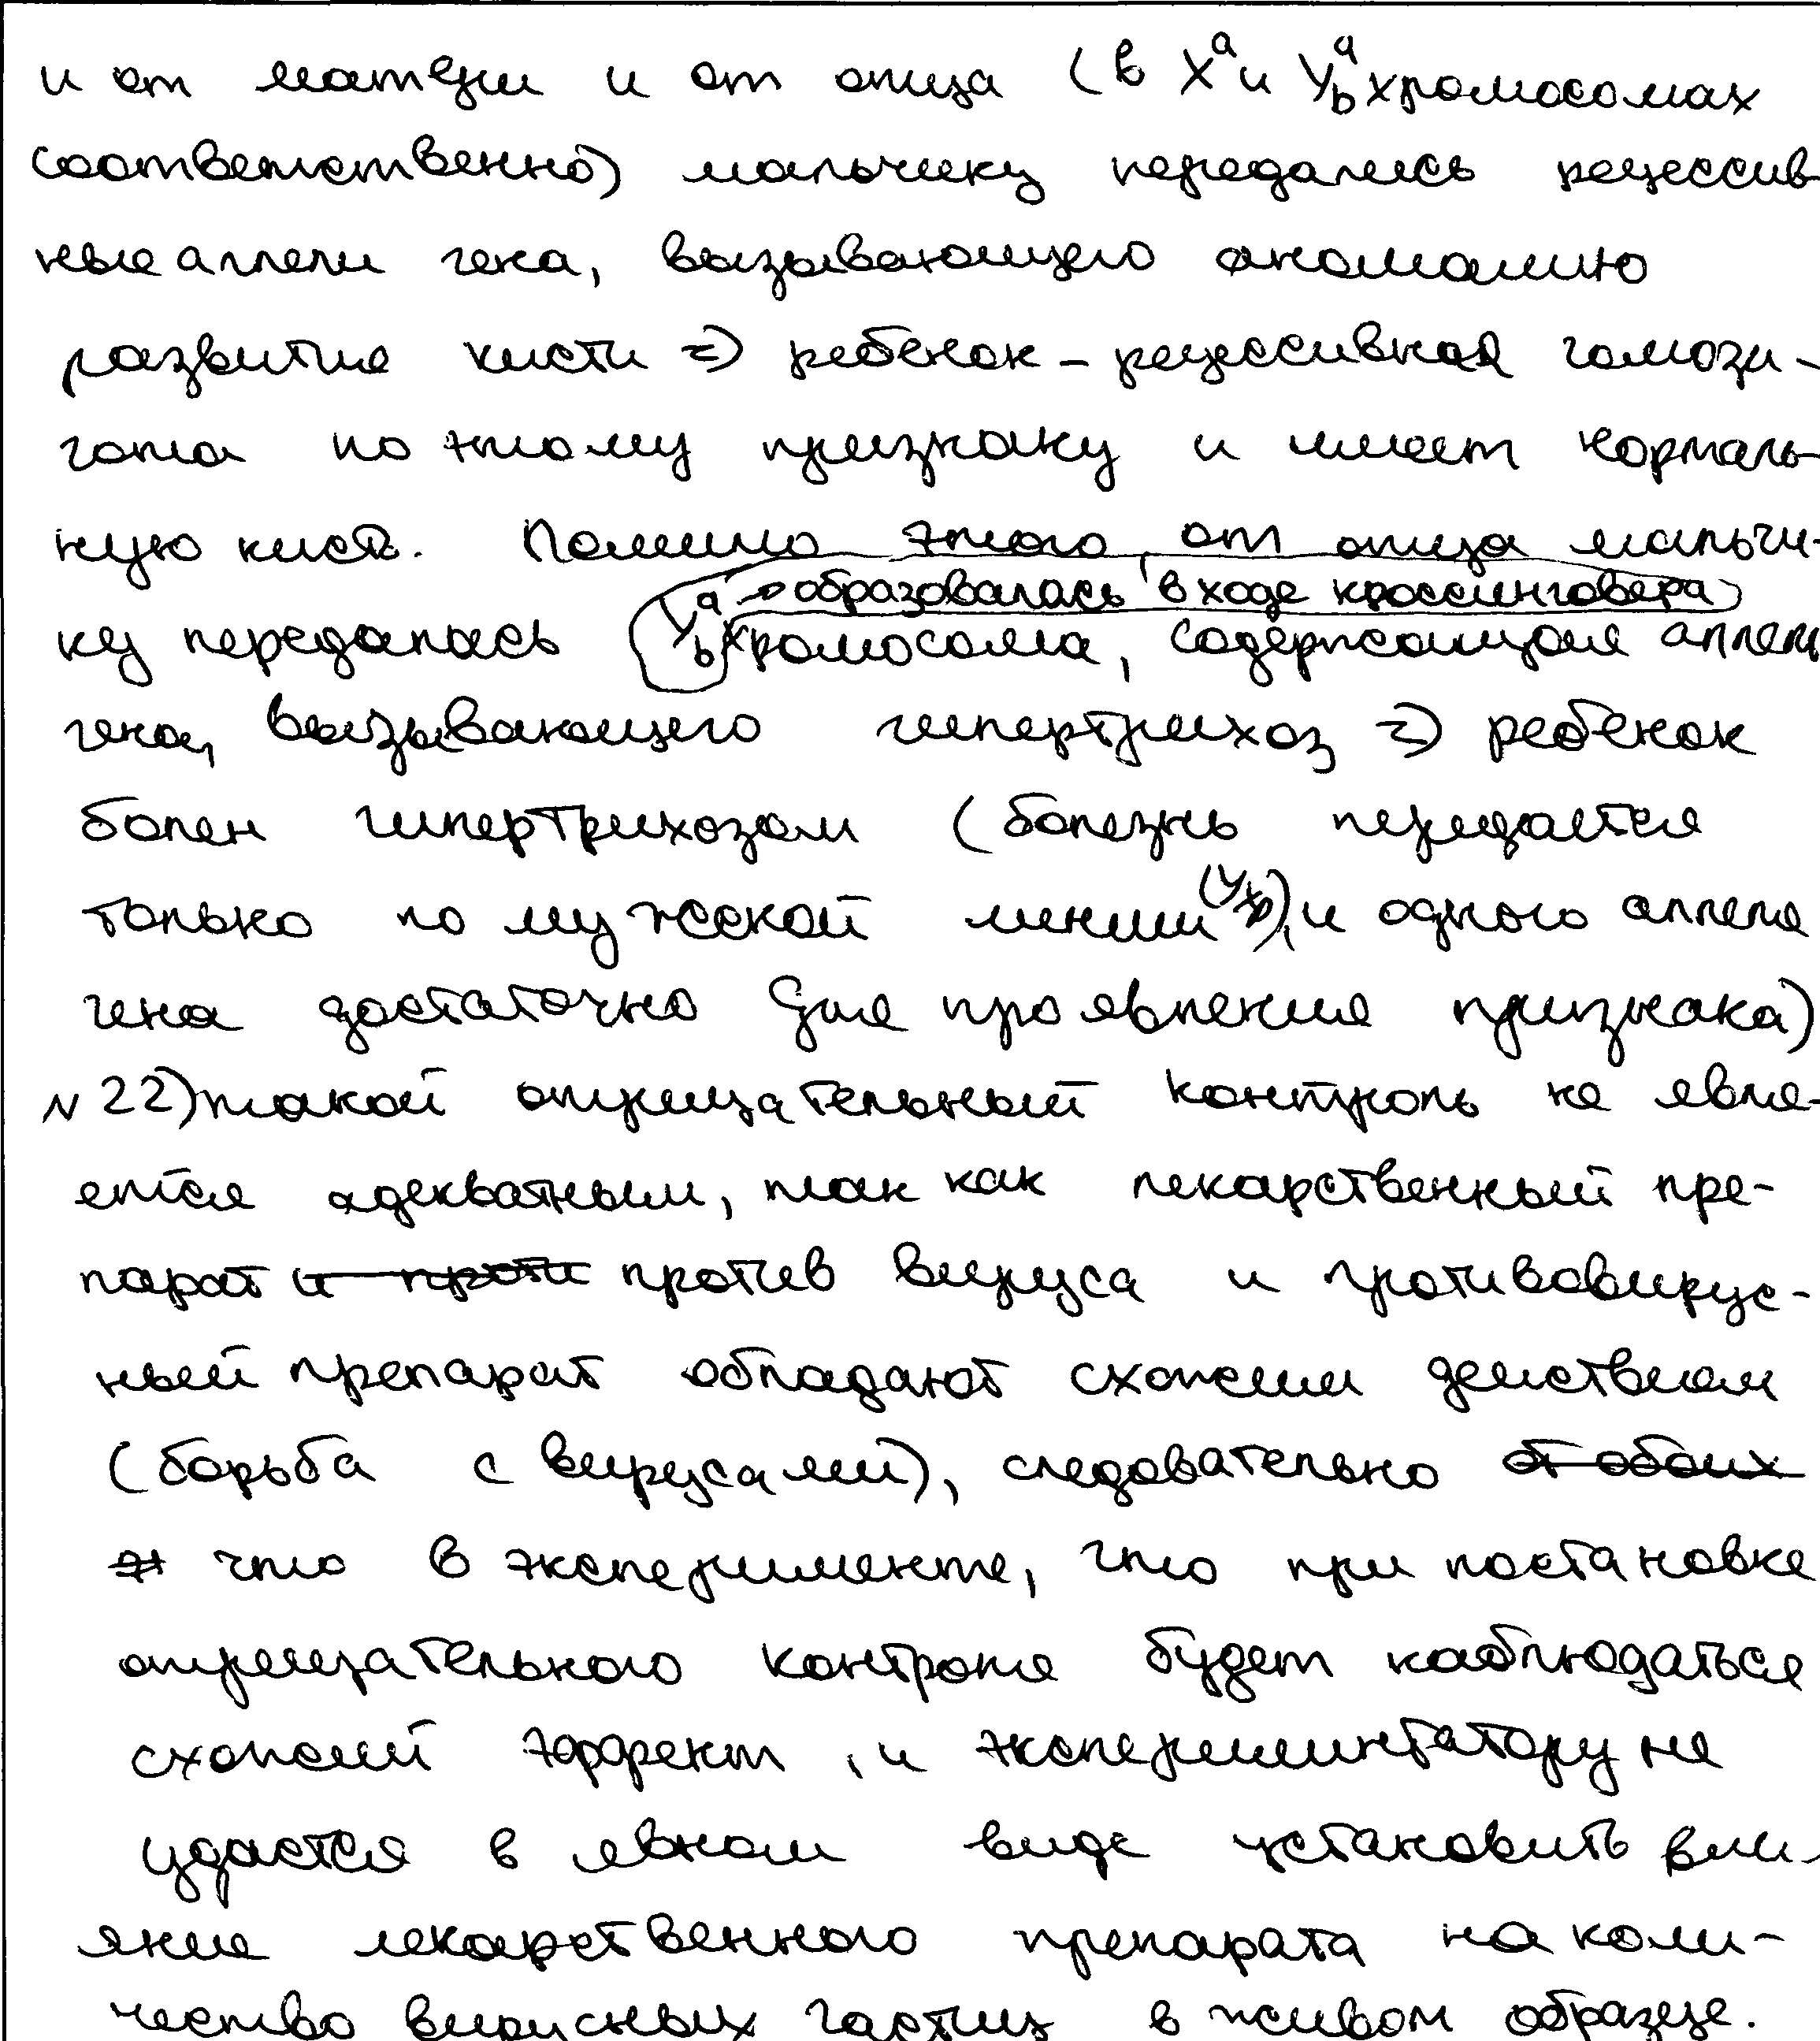 и от матери и от отца (в Xᵃ и Y_bᵃ хромосомах
соответственно) мальчику передались рецессив-
ные аллели гена, вызывающего аномалию
развития кисти => ребенок - рецессивная гомози-
гота по этому признаку и имеет нормаль-
ную кисть. Помимо этого, от отца мальчи-
→ образовалась в ходе кроссинговера
ку передалась Y_bᵃ хромосома, содержащая аллель
гена, вызывающего гипертрихоз => ребенок
болен гипертрихозом (болезнь передается
только по мужской линии, и одного аллеля
гена достаточно для проявления признака)
№ 22) такой отрицательный контроль не явля-
ется адекватным, так как лекарственный пре-
парат и проти против вируса и противовирус-
ный препарат обладают схожим действием
(борьба с вирусами), следовательно от обоих
что в эксперименте, что при постановке
отрицательного контроля будет наблюдаться
схожий эффект, и экспериминтатору не
удастся в явном виде установить вли-
яние лекарственного препарата на коли-
чество вирусных частиц в живом образце.